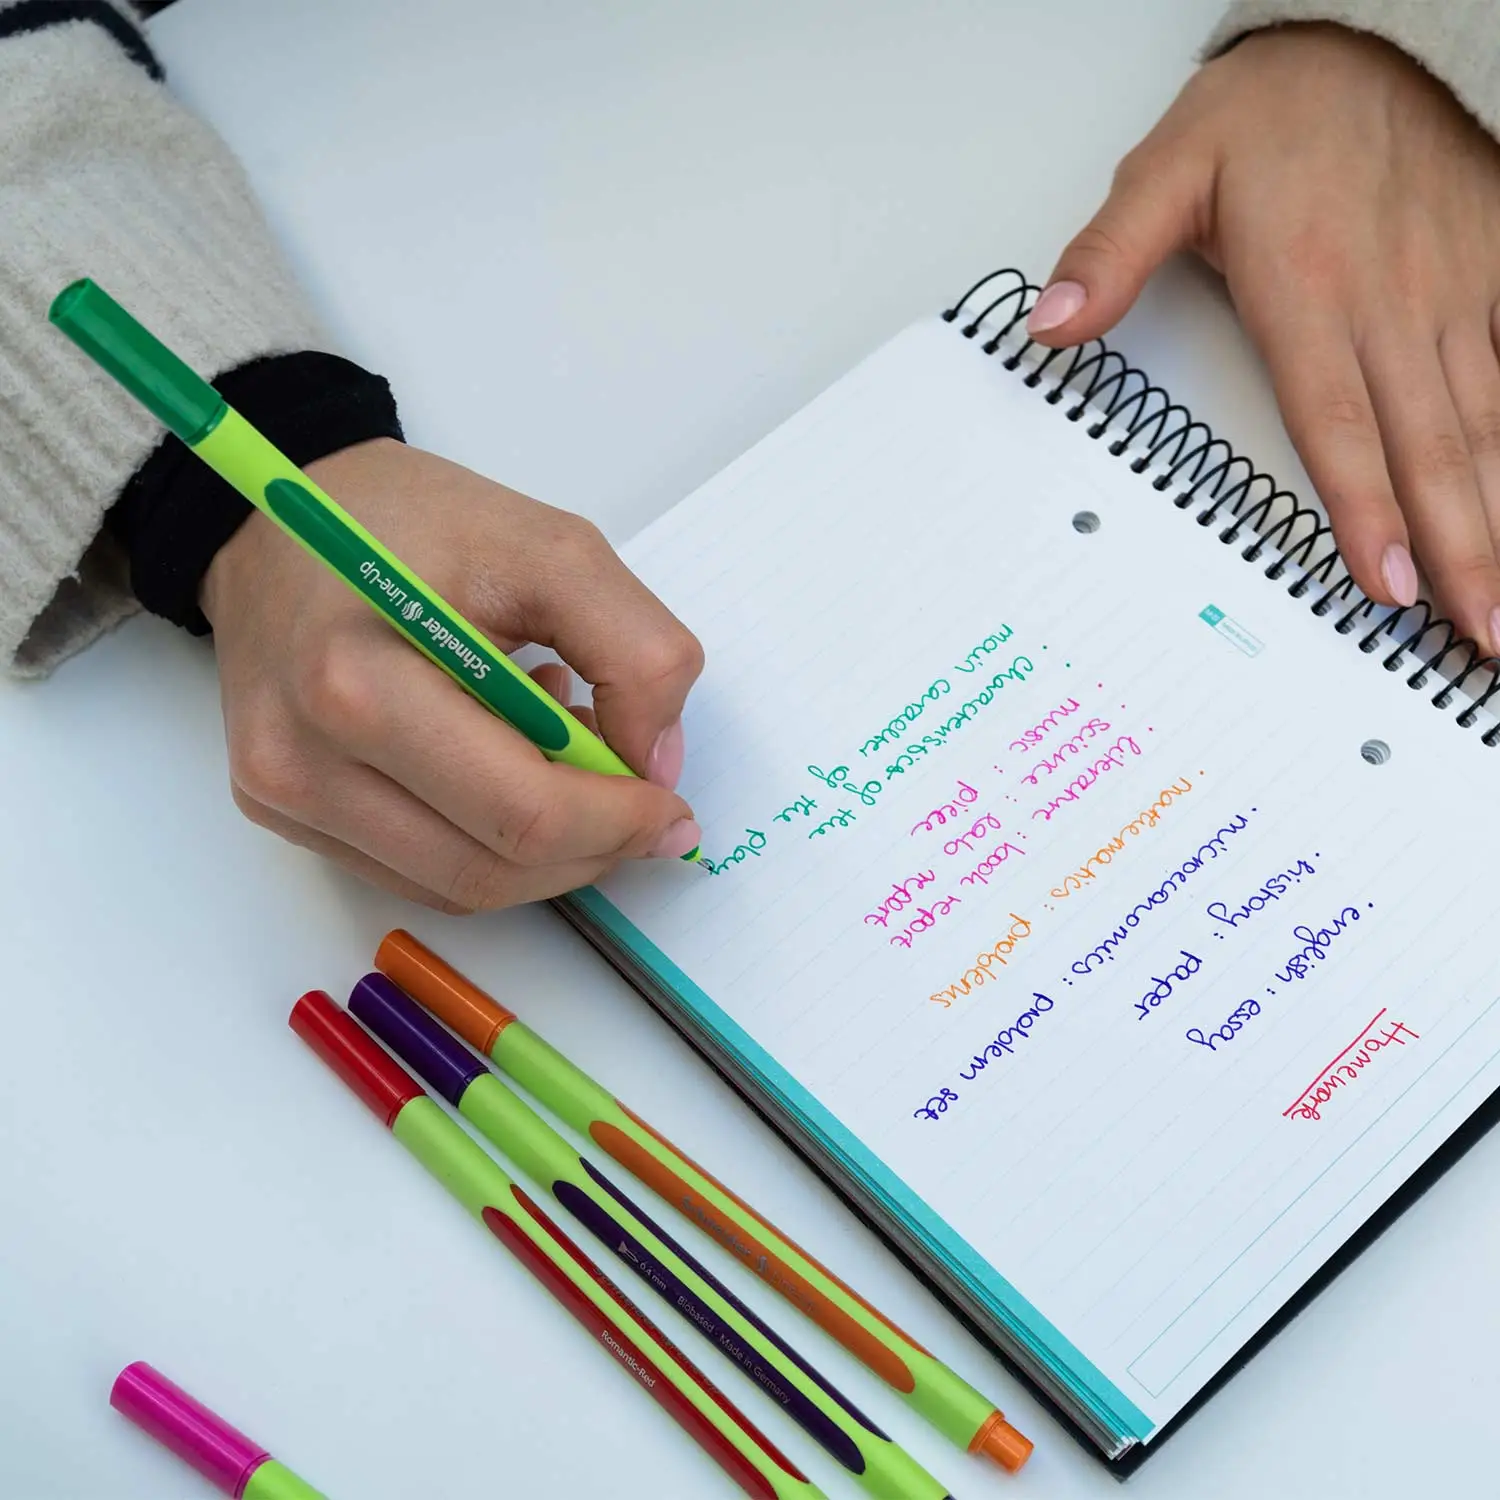 Homework
· english : essay
· history : paper
· microeconomics : problem set
· mathematics : problems
· literature : book report
· science : lab report
· music : piece
· characteristics of the
main caracter of the play
Schneider Line-Up
Schneider Line-Up
0.4 mm Biobased · Made in Germany
Romantic-Red